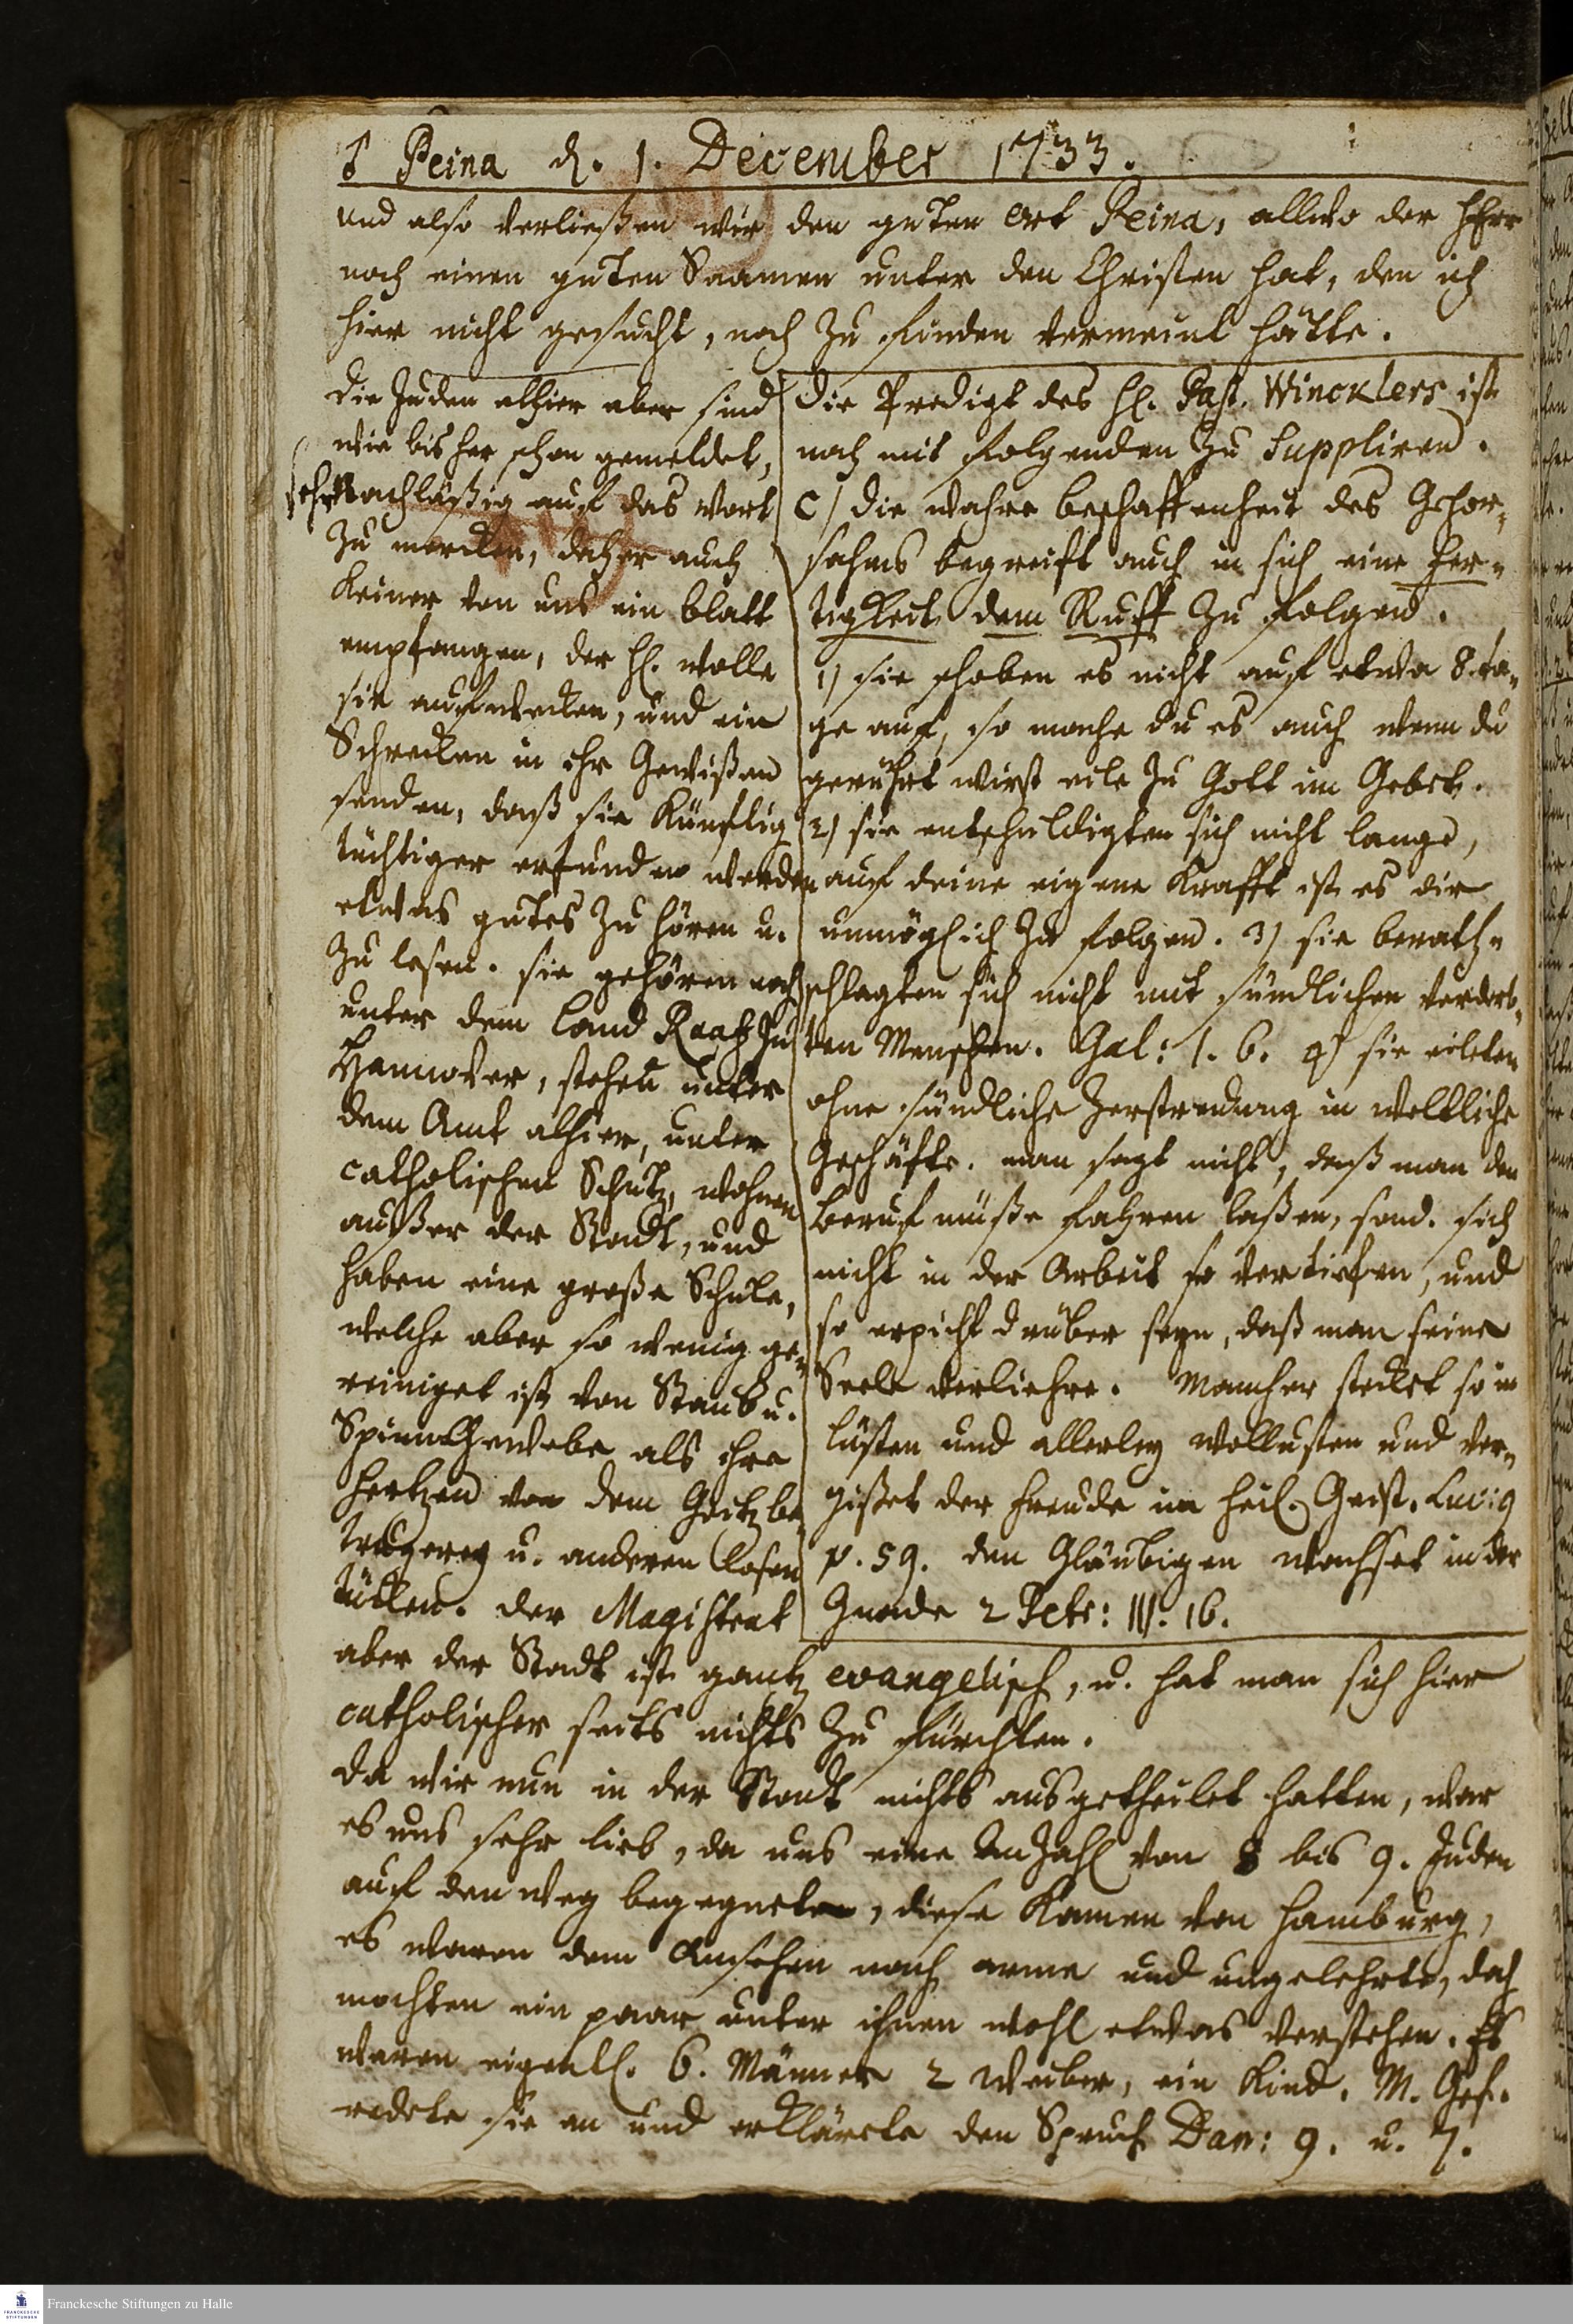 ♂ Peina d. 1. December 1733.
und also verließen wir den guten Ort Peina, allwo der HErr
noch einen guten Saamen unter den Christen hat, den ich
hier nicht gesucht, noch zu finden vermeint hätte.
die Juden alhier aber sind
wie bisher schon gemeldet,
sehr nachläßig auf das Wort
zu mercken, daher auch
keiner von uns ein Blatt
empfangen, der H. wolle
sie aufwecken, und ein
Schrecken in ihr Gewißen
senden, daß sie künftig
tüchtiger erfunden werden
etwas gutes zu hören u.
zu lesen. sie gehören noch
unter dem Land Raab zu
Hannover, stehen unter
dem Amt alhier, unter
catholischen Schutz, wohnen
außer der Stadt, und
haben eine große Schule,
welche aber so wenig ge-
reiniget ist von Staub u.
Spinnengewebe als ihre
Hertzen von dem Geitz be-
trügerey u. anderen losen
tücken. der Magistrat
die Predigt des H. Past. Wincklers ist
noch mit folgenden zu Suppliren.
C) die wahre beschaffenheit des Gehor-
sahms begreift auch in sich eine Fer-
tigkeit dem Ruff zu folgen.
1) sie schoben es nicht auf etwa 8. ta-
ge auf, so mache du es auch wenn du
gerührt wirst eile zu Gott im Gebet.
2) sie entschuldigten sich nicht lange,
auf deine eigene Krafft ist es dir
unmöglich zu folgen. 3) sie berath-
schlagten sich nicht mit sündlichen verderb-
ten Menschen. Gal: 1. 6. 4) sie eileten
ohne sündliche Zerstreuung in weltliche
Geschäfte. man sagt nicht, daß man den
Beruf müße fahren laßen, sond. sich
nicht in der Arbeit so vertiefen, und
so erpicht drüber seyn, daß man seine
Seele verliehre. Mancher stecket so in
lüsten und allerley wollusten und ver-
gißet der Freude im heil. Geist. Luc: 9
p. 59. den Gläubigen wachset in der
Gnade 2 Petr: III. 16.
aber der Stadt ist gantz evangelisch, u. hat man sich hier
catholischer seits nichts zu fürchten.
da wir nun in der Stadt nichts ausgetheilet hatten, war
es uns sehr lieb, da uns eine Anzahl von 8 bis 9. Juden
auf den Weg begegneten, diese kamen von Hamburg,
es waren dem Ansehen nach arme und ungelehrte, doch
mochten ein paar unter ihnen wohl etwas verstehen. Es
waren eigentl. 6. Männer 2 Weiber, ein Kind. M. Gef.
redete sie an und erklärete den Spruch Dan: 9. u. 7.
Franckesche Stiftungen zu Halle